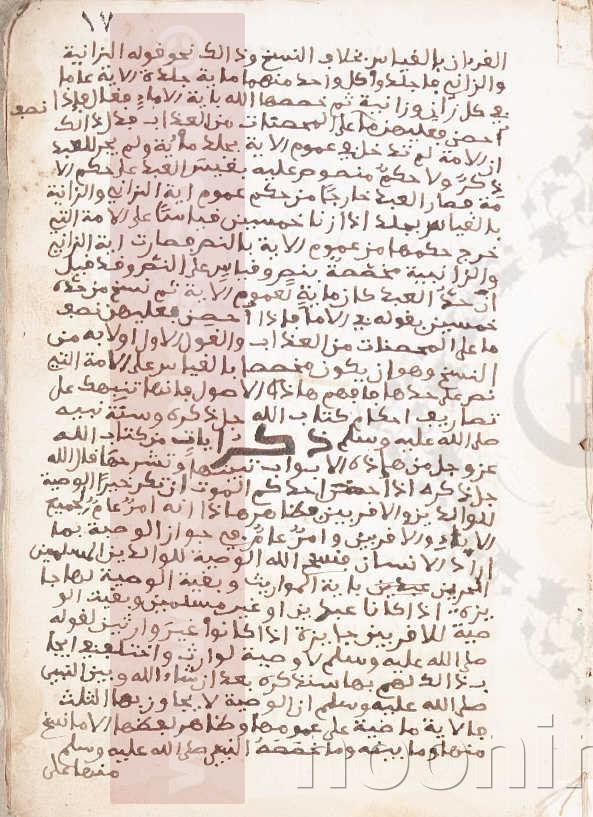 ١٧
القرءان بالقياس بخلاف النسخ وذالك نحو قوله الزانية
والزاني فاجلدوا كل واحد منهما ماية جلدة الاية عاما
في كل زاني وزانية ثم خصصها الله باية الاماء فقال فإذا
أحصن فعليهن نصف ما على المحصنات من العذاب فدل ذالك
ان الامة لم تدخل في عموم الاية بجلد مائة ولم يجر للعبد
ذكر ولا حكم منصوص عليه فقيس العبد على حكم الا
مة فصار العبد خارجا من حكم عموم اية الزاني والزانية
بالقياس يجلد اذا زنا خمسين قياسا على الامة التي
خرج حكمها من عموم الاية بالنص فصارت اية الزاني
والزانية مخصصة بنص وقياس على النص وقد قيل
ان حد العبد كان ماية لعموم الاية ثم نسخ من حده
خمسين بقوله في الاماء فإذا أحصن فعليهن نصف
ما على المحصنات من العذاب والقول الاول اولا به من
النسخ وهو ان يكون مخصصا بالقياس على الامة التي
نص على حدها فافهم هاذه الاصول فانها تنبهك على
تصاريف احكام كتاب الله جل ذكره وسنة نبيه
صلى الله عليه وسلم ذكر ايات من كتاب الله
عز وجل من هاذه الابواب نبينها ونشرحها قال الله
جل ذكره اذا حضر احدكم الموت ان ترك خيرا الوصية
للوالدين والاقربين هاذا انه امر عام لجميع
الاباء والاقربين وامر عام في جواز الوصية بما
اراد الانسان فنسخ الله الوصية للوالدين المسلمين
الحرين باية المواريث وبقية الوصية لهما جا
يزة اذا كانا عبدين او غير مسلمين وبقية الو
صية للاقربين جايزة اذا كانوا غير وارثين لقوله
صلى الله عليه وسلم لا وصية لوارث واختلف في ايجا
ب ذالك لهم بما سنذكره بعد ان شاء الله وبين النبي
صلى الله عليه وسلم ان الوصية لا يجاوز بها الثلث
فالاية ماضية على عمومها وظاهر لفظها الا ما نسخ
منها وما بينه وما خصصه النبي صلى الله عليه وسلم
منها على
noonin